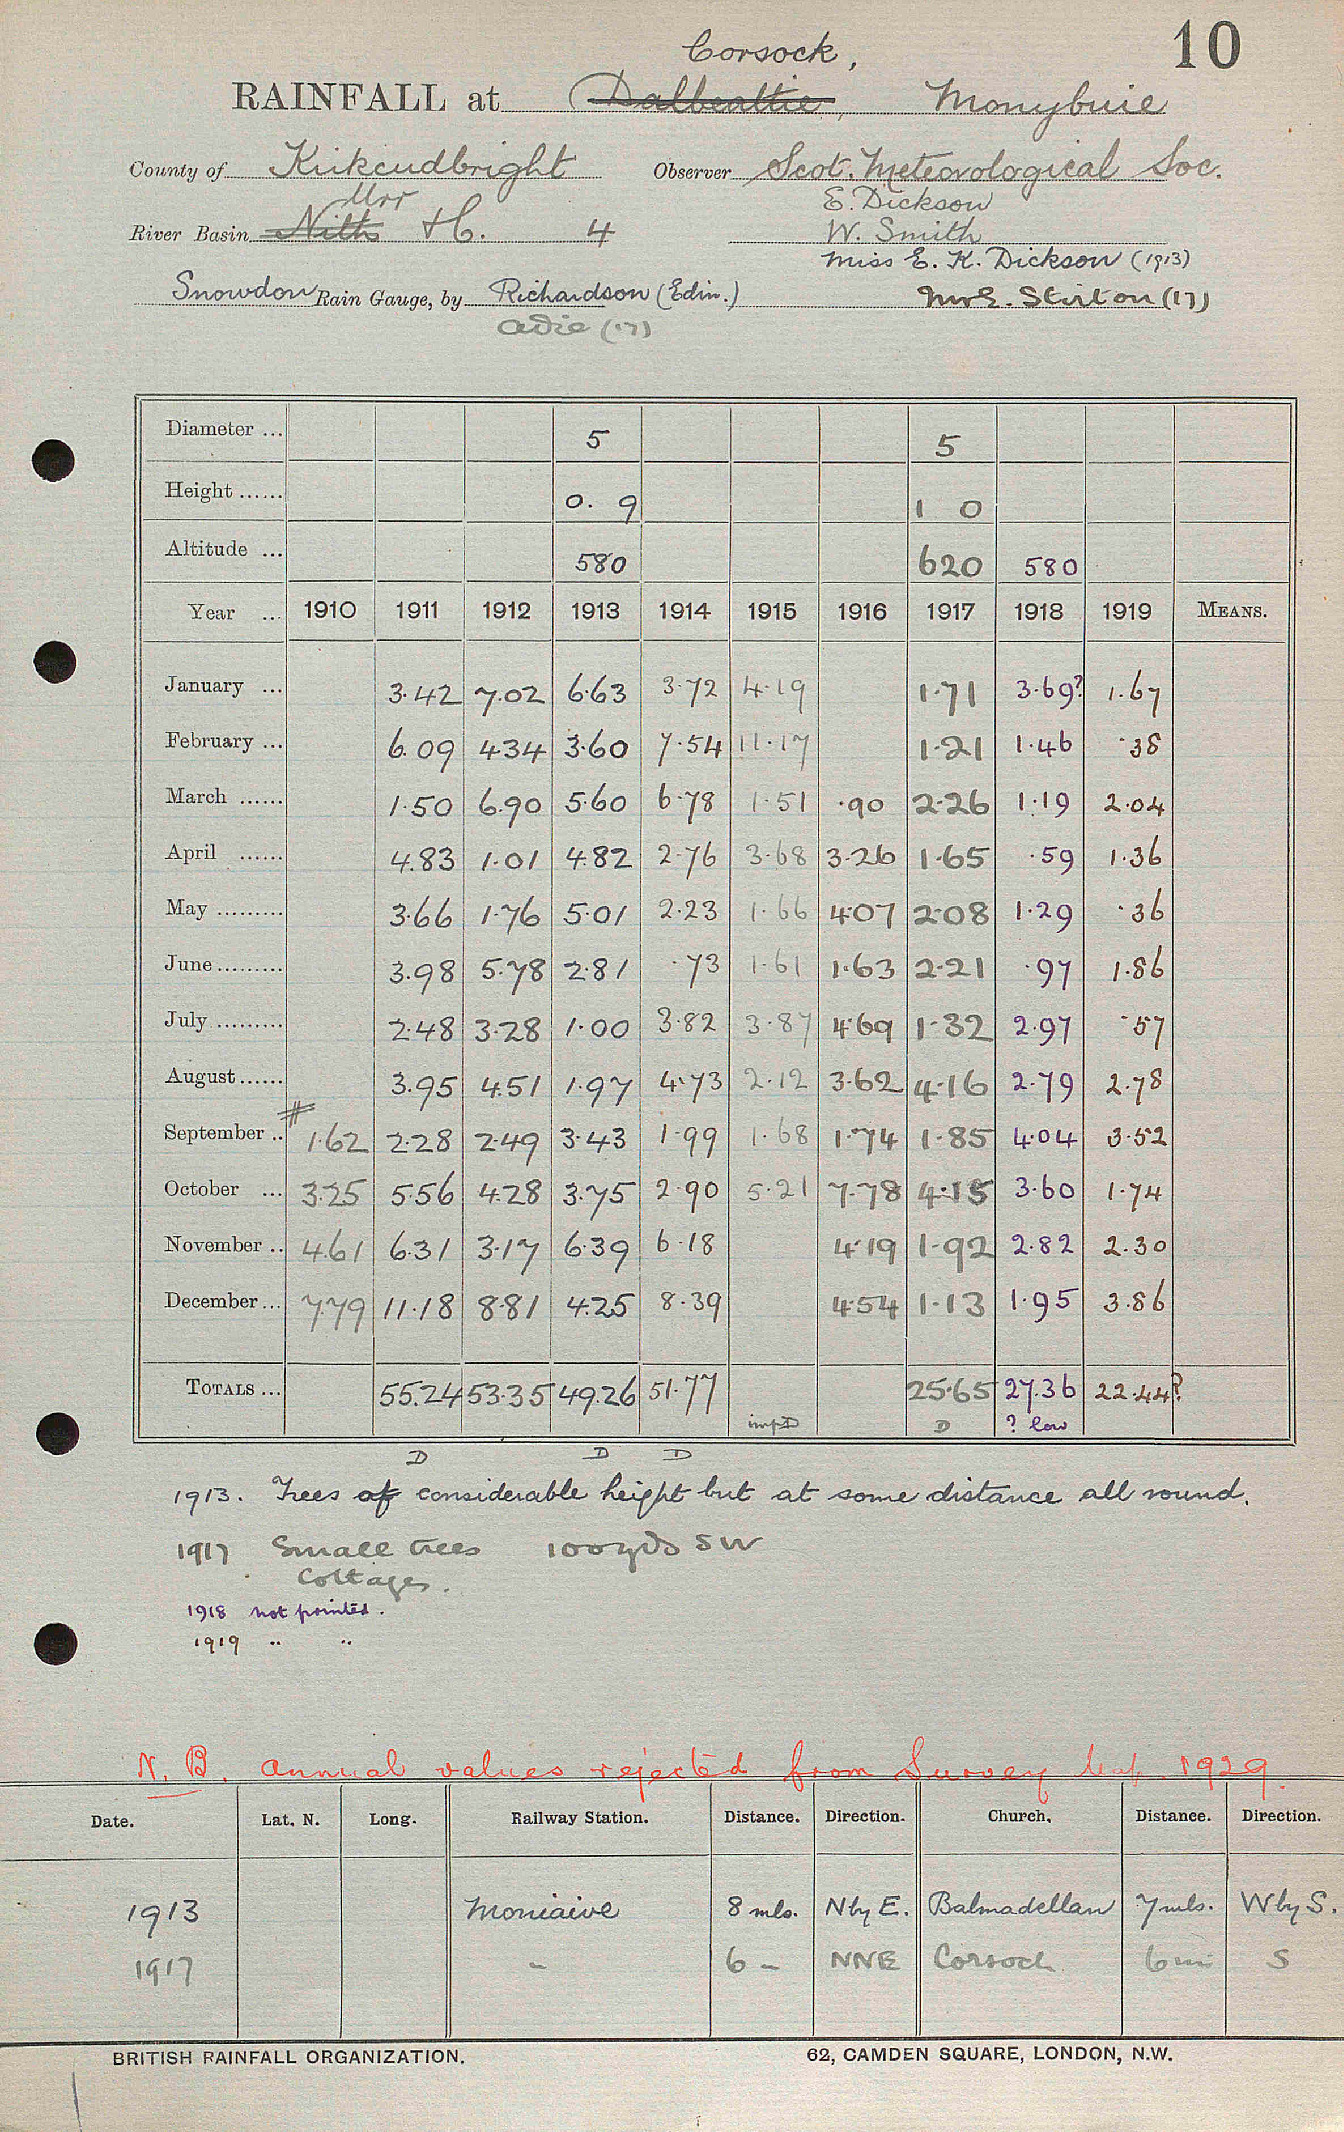 10
Corsock,
RAINFALL at Dalbeattie, Monybuie
County of Kirkcudbright Observer Scot. Meteorological Soc.
Urr E. Dickson
River Basin Nith +C. 4 W. Smith
Miss E. K. Dickson (1913)
Snowdon Rain Gauge, by Richardson (Edin.) Mrs E. Stirton (17)
Adie (17)
Diameter ... 5 5
Height ...... 0. 9 1 0
Altitude ... 580 620 580
Year ... 1910 1911 1912 1913 1914 1915 1916 1917 1918 1919 MEANS.
January ... 3.42 7.02 6.63 3.72 4.19 1.71 3.69? 1.67
February ... 6.09 4.34 3.60 7.54 11.17 1.21 1.46 .38
March ...... 1.50 6.90 5.60 6.78 1.51 .90 2.26 1.19 2.04
April ...... 4.83 1.01 4.82 2.76 3.68 3.26 1.65 .59 1.36
May ......... 3.66 1.76 5.01 2.23 1.66 4.07 2.08 1.29 .36
June ......... 3.98 5.78 2.81 .73 1.61 1.63 2.21 .97 1.86
July ......... 2.48 3.28 1.00 3.82 3.87 4.69 1.32 2.97 .57
August ...... 3.95 4.51 1.97 4.73 2.12 3.62 4.16 2.79 2.78
September .. # 1.62 2.28 2.49 3.43 1.99 1.68 1.74 1.85 4.04 3.52
October ... 3.25 5.56 4.28 3.75 2.90 5.21 7.78 4.15 3.60 1.74
November .. 4.61 6.31 3.17 6.39 6.18 4.19 1.92 2.82 2.30
December ... 7.79 11.18 8.81 4.25 8.39 4.54 1.13 1.95 3.86
TOTALS ... 55.24 53.35 49.26 51.77 25.65 27.36 22.44?
impD D ? low
D D D
1913. Trees of considerable height but at some distance all round.
1917 Small trees 100yds SW
Cottages.
1918 not printed.
1919 " "
N.B. Annual values rejected from Survey Map 1929.
Date. Lat. N. Long. Railway Station. Distance. Direction. Church. Distance. Direction.
1913 Moniaive 8 mls. N by E. Balmadellan 7 mls. W by S.
1917 " 6 " NNE Corsock 6 m S
BRITISH RAINFALL ORGANIZATION. 62, CAMDEN SQUARE, LONDON, N.W.